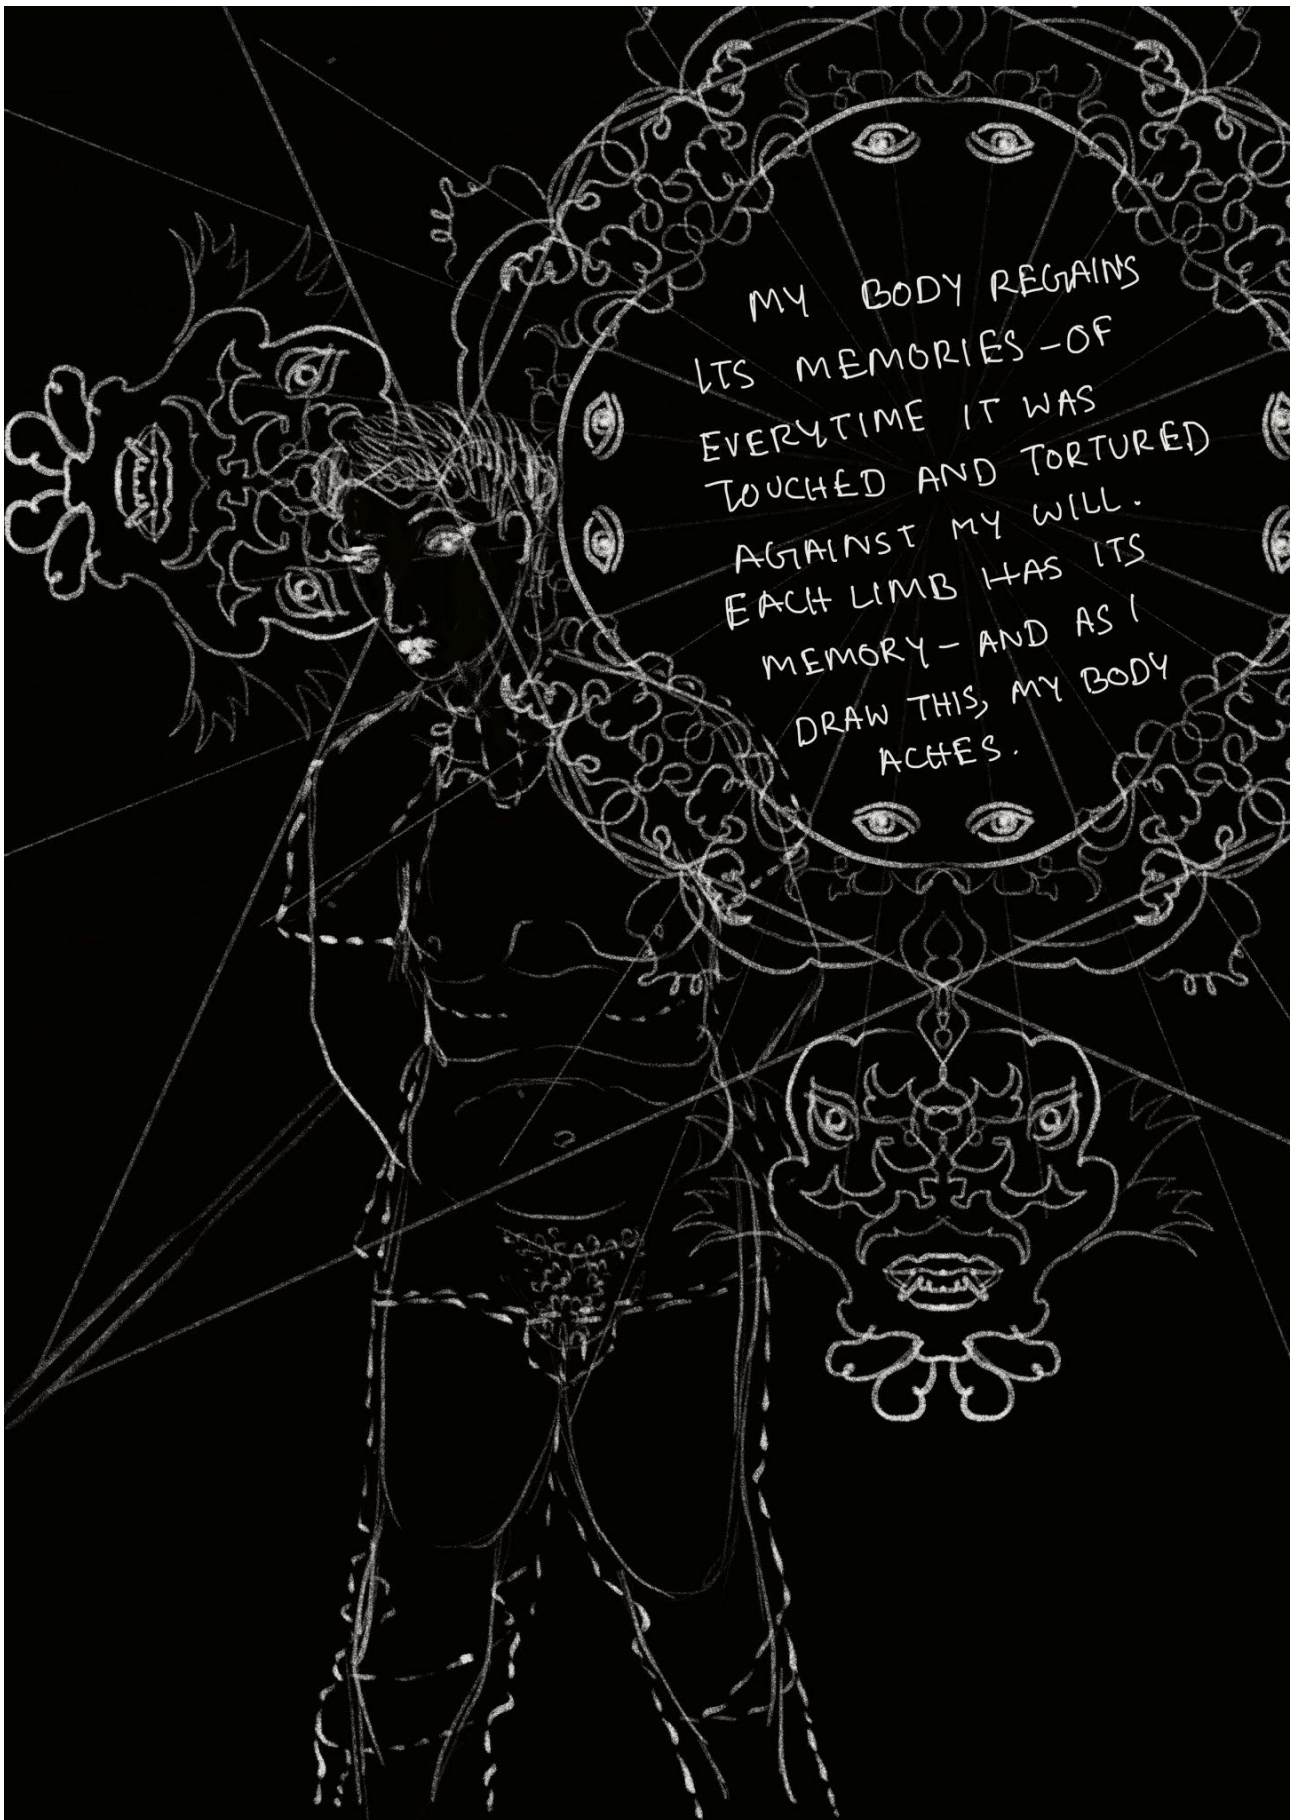 MY BODY REGAINS
ITS MEMORIES - OF
EVERYTIME IT WAS
TOUCHED AND TORTURED
AGAINST MY WILL.
EACH LIMB HAS ITS
MEMORY - AND AS I
DRAW THIS, MY BODY
ACHES.